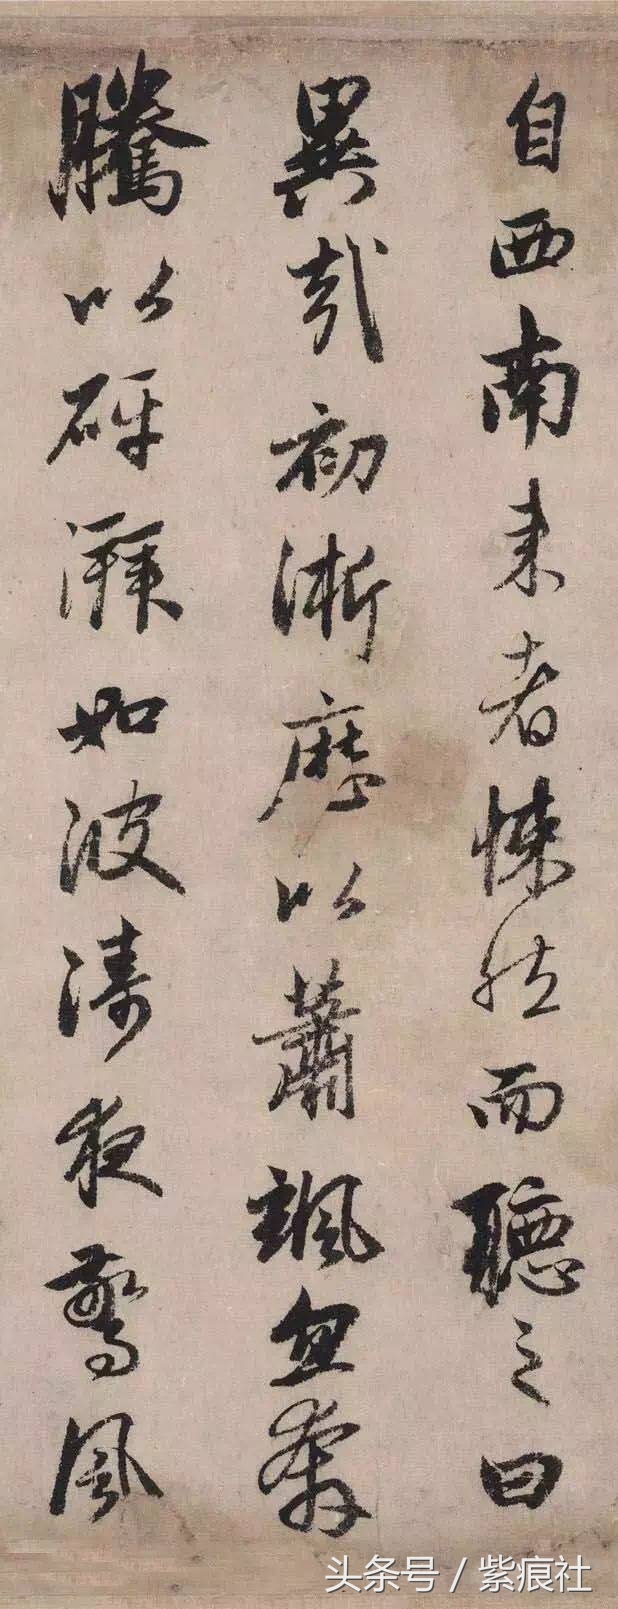 自西南来者悚然而聽之曰
異哉初淅歷以蕭颯忽奔
騰以砰湃如波濤夜驚風
头条号 / 紫痕社